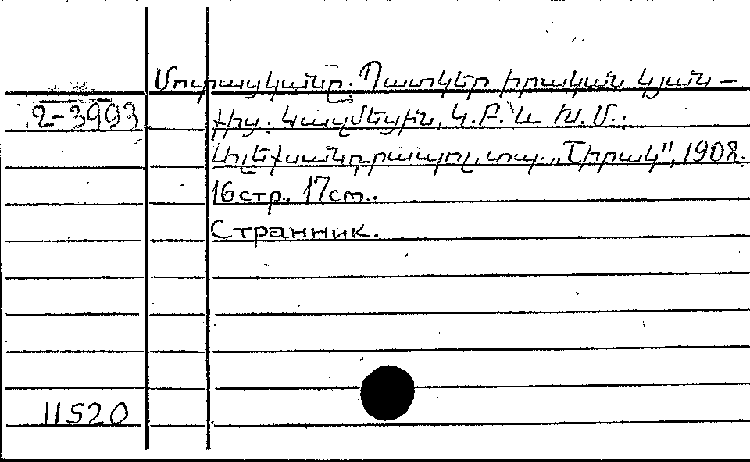 Մուրացկանը. Պատկեր իրական կյան –
2-3993
քից. Կազմեցին, Կ.Բ. և Խ.Մ.:
Ալեքսանդրապոլ, տպ. „Շիրակ", 1908.
16стр. 17см..
Странник.
11520